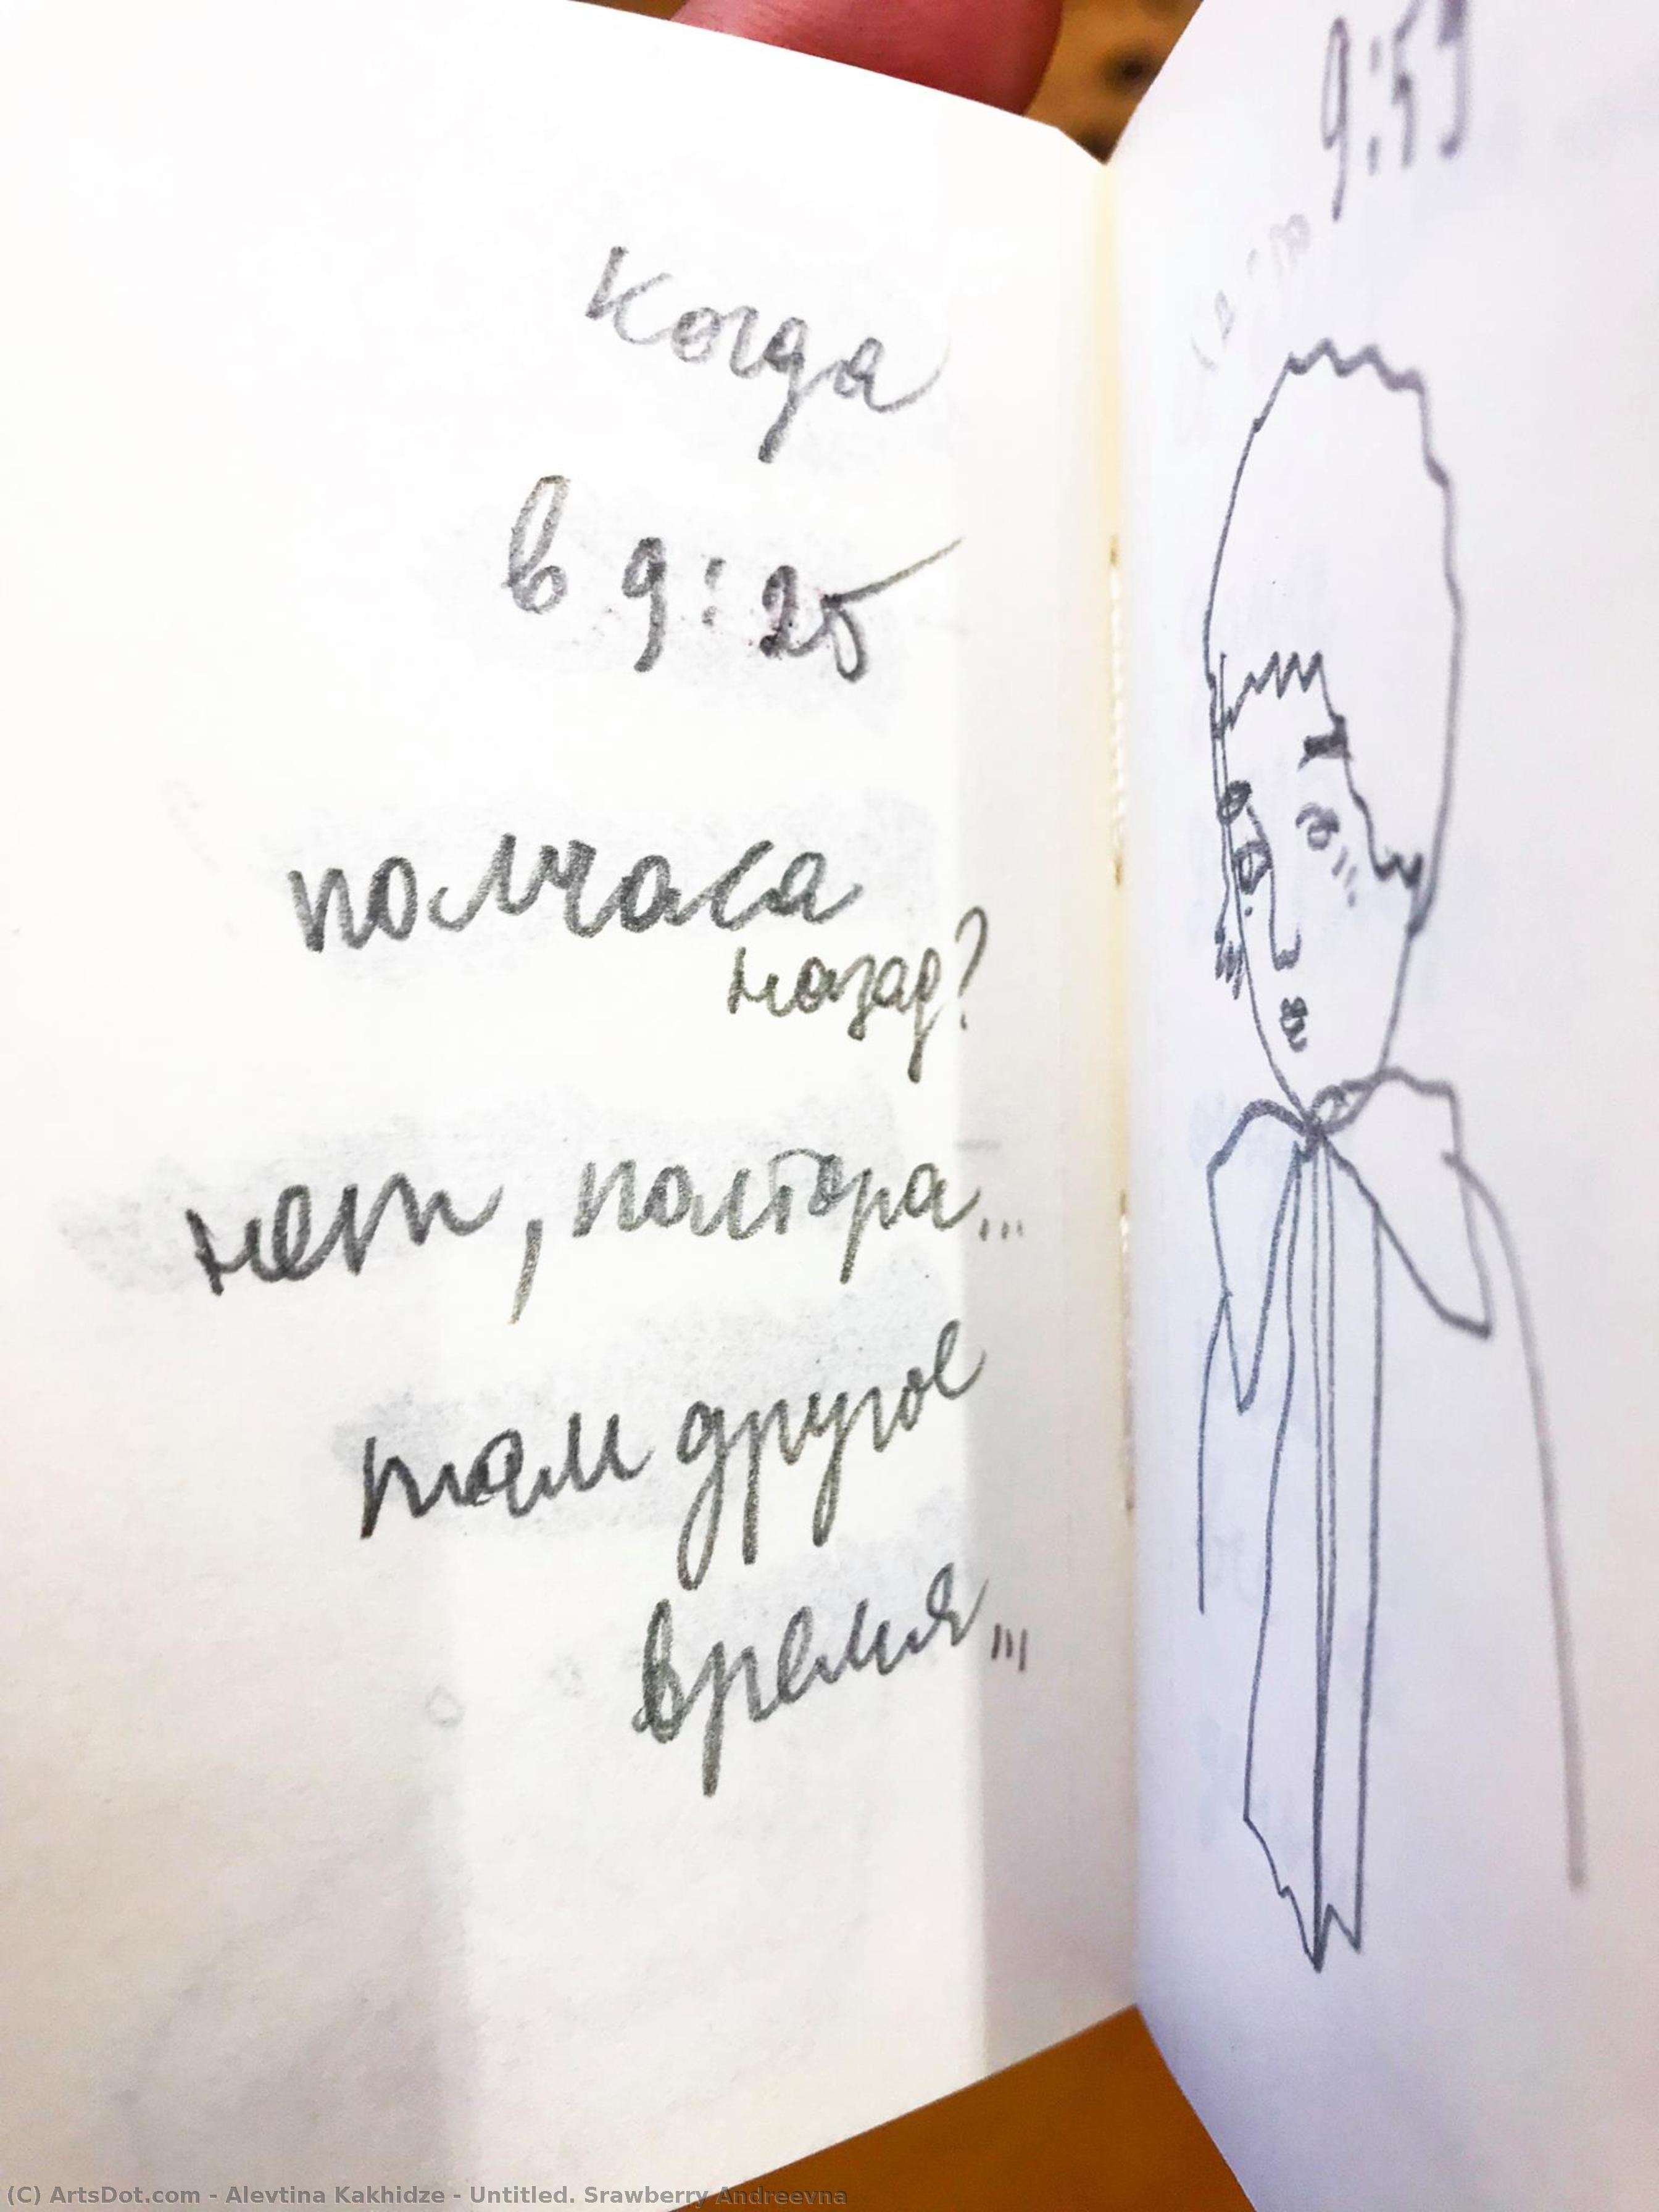 Когда
в 9:25
полчаса
назад?
нет, полтора...
там другое
время...
9:59
(C) ArtsDot.com - Alevtina Kakhidze - Untitled. Srawberry Andreevna